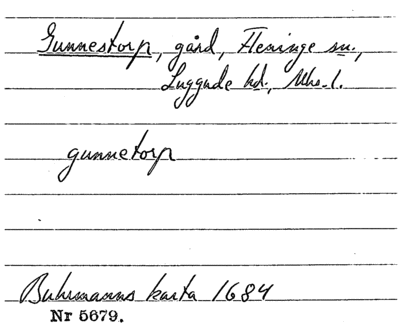 Gunnestorp, gård, Fleninge sn.,
Luggude hd., Mhs. l.
gunnetorp
Buhrmanns karta 1684
Nr 5679.